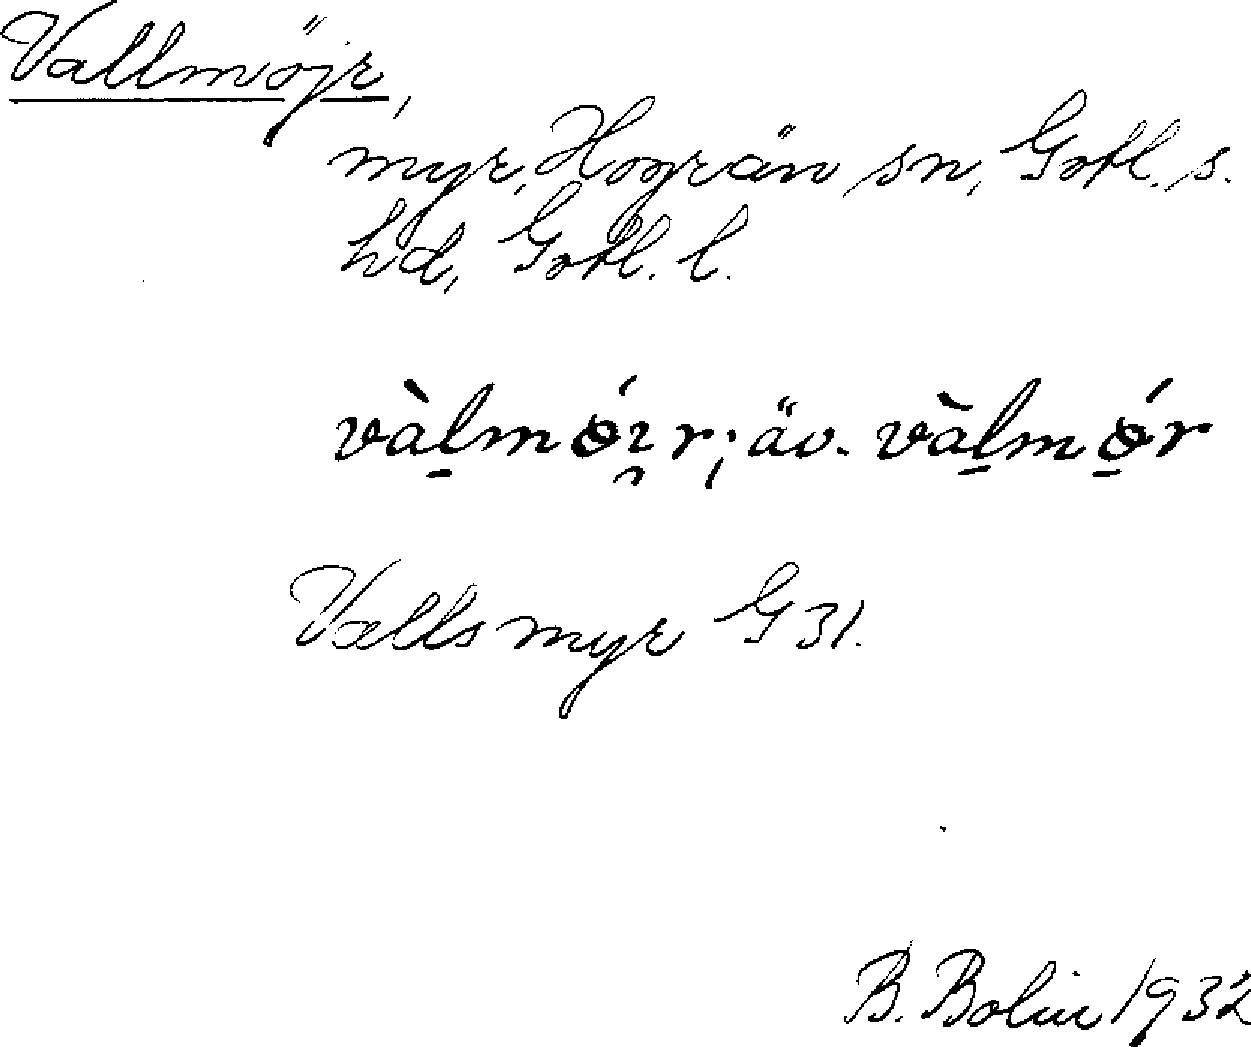 Vallmöjr,
myr, Hogrän sn, Gotl. s.
hd, Gotl. l.
vàl̠mǿɪ̯r; äv. vàl̠mǿ̠r
Valls myr G 31.
B. Bolin 1932